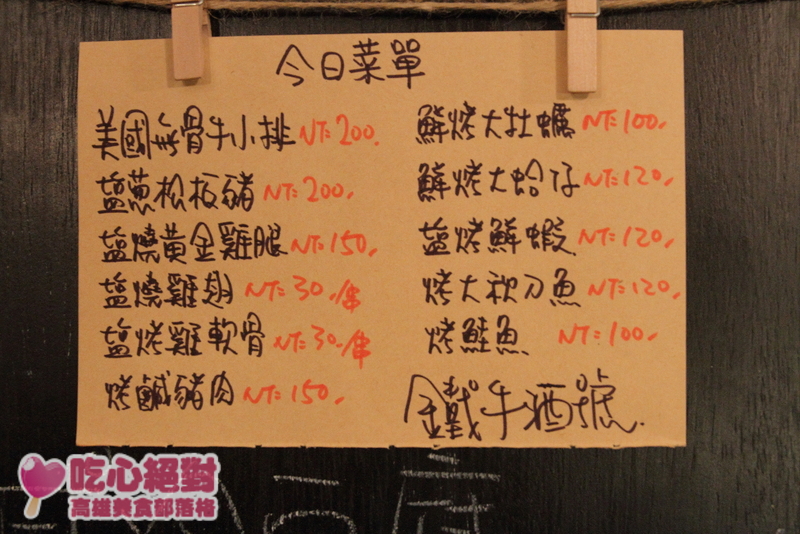 今日菜單
美國無骨牛小排 NT:200.
鹽蔥松板豬 NT:200.
鹽燒黃金雞腿 NT:150.
鹽燒雞翅 NT:30./串
鹽烤雞軟骨 NT:30./串
烤鹹豬肉 NT:150.
鮮烤大牡蠣 NT:100.
鮮烤大蛤仔 NT:120.
鹽烤鮮蝦 NT:120.
烤大秋刀魚 NT:120.
烤鮭魚 NT:100.
金鐵牛酒號.
吃心絕對
高雄美食部落格